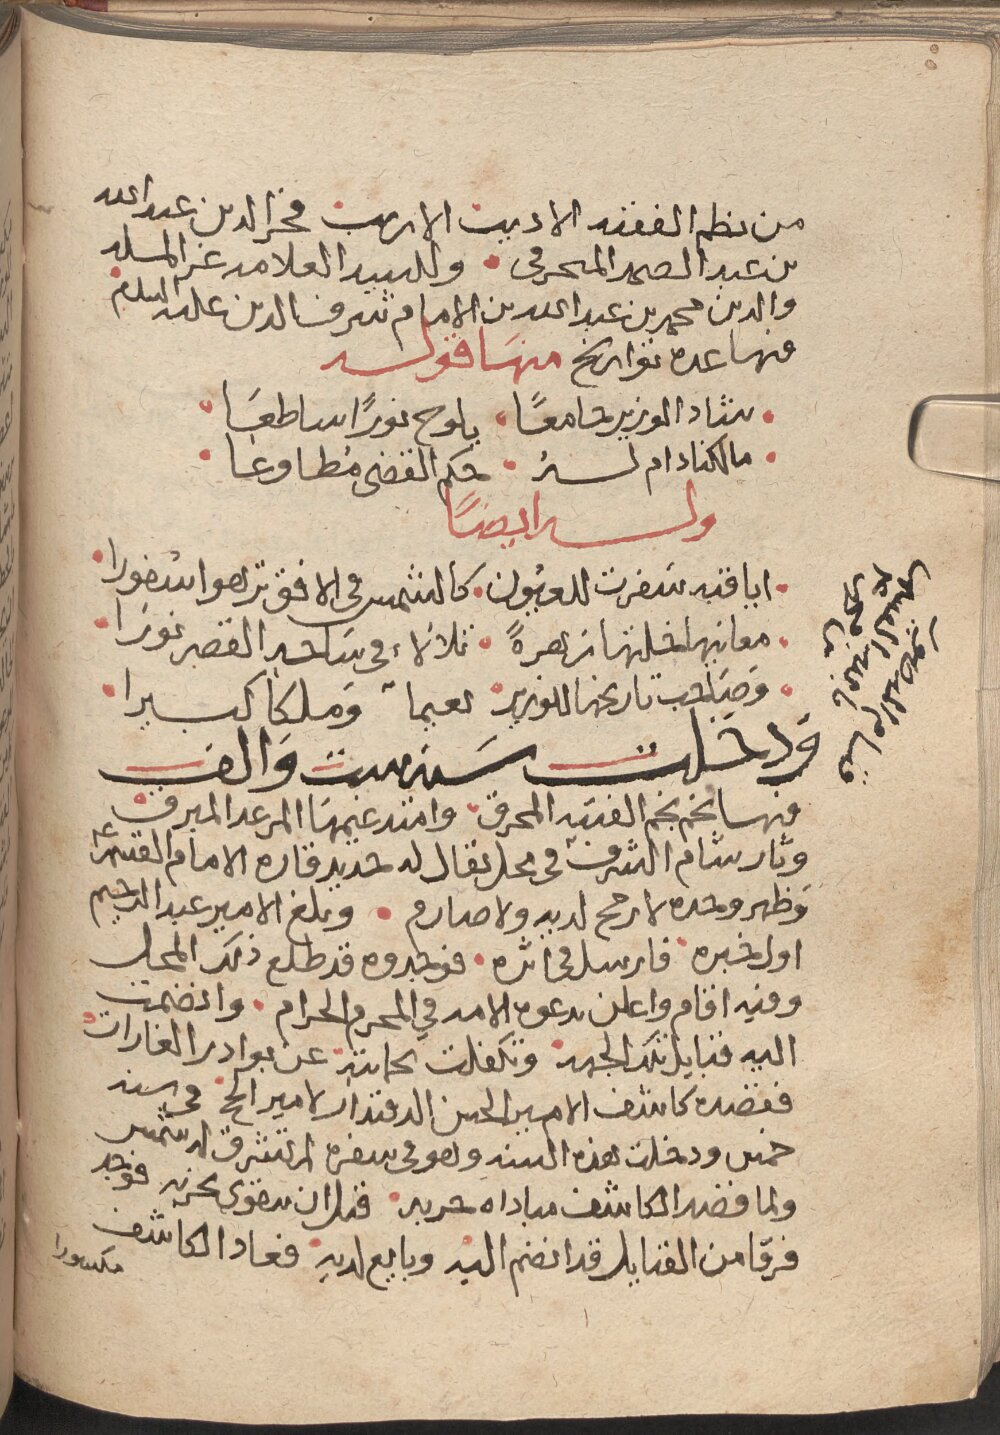 من نظم الفقيه الاديب الاريب فخر الدين عبد الله
بن عبد الصمد المحرفى وللسيد العلامه عز المله
والدين محمد بن عبد الله بن الامام شرف الدين عليه السلام
فيها عده تواريخ منها قوله
شاد الوزير جامعًا يلوح نورًا ساطعَا
مالكنا دام له حكم القضى مُطاوعا
وله ايضًا
ايا قبه سَفرت للعيُون كالشمس فى الافق تزهوا سُفورا
معانيها خلتها زهرةً تلألاء فى ساحه القصر نورَا
وَصَاحب تاريخها للوزير نعيما وَملكًا كبيرا
وَدخلت سَنه ست وَالف
فيها نخم نجم الفتنه المحرق وامتد غيمهَا المرعد المبرق
وثار بشام الشرف فى محل يقال له حديد قاره الامام القسم
وظهر وحده لا رمح لديه ولا صارم وبلغ الامير عبد الرحيم
اول خبره فارسل فى اثره فوجدوه قد طلع ذلك المحل
وفيه اقام واعلن بدعوه الامه في المحرم الحرام وانضمت
اليه قبايل تلك الجهه وتكفلت بحمايته عن بوادر الغارات
فقصده كاشف الامير الحسن الدفتدار لامير الحج فى سنه
خمس ودخلت هذه السنه وهو فى سفره لم تشرق له شمس
ولما قصد الكاشف مباداه حربه قبل ان يقوى بحزبه فوجد
فرقا من القبايل قد انضم اليه وبايع لديه فعاد الكاشف
مكسورا